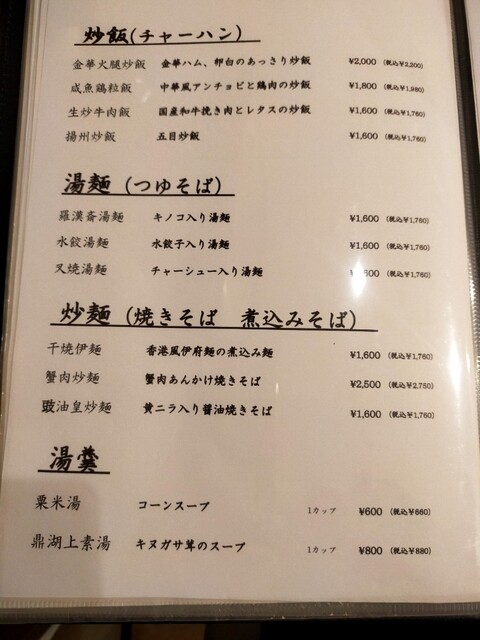 炒飯(チャーハン)
金華火腿炒飯 金華ハム、卵白のあっさり炒飯 ¥2,000 (税込¥2,200)
咸魚鶏粒飯 中華風アンチョビと鶏肉の炒飯 ¥1,800 (税込¥1,980)
生炒牛肉飯 国産和牛挽き肉とレタスの炒飯 ¥1,600 (税込¥1,760)
揚州炒飯 五目炒飯 ¥1,600 (税込¥1,760)
湯麺 (つゆそば)
羅漢斎湯麺 キノコ入り湯麺 ¥1,600 (税込¥1,760)
水餃湯麺 水餃子入り湯麺 ¥1,600 (税込¥1,760)
叉焼湯麺 チャーシュー入り湯麺 ¥1,600 (税込¥1,760)
炒麺 (焼きそば 煮込みそば)
干焼伊麺 香港風伊府麺の煮込み麺 ¥1,600 (税込¥1,760)
蟹肉炒麺 蟹肉あんかけ焼きそば ¥2,500 (税込¥2,750)
豉油皇炒麺 黄ニラ入り醤油焼きそば ¥1,600 (税込¥1,760)
湯羹
粟米湯 コーンスープ 1カップ ¥600 (税込¥660)
鼎湖上素湯 キヌガサ茸のスープ 1カップ ¥800 (税込¥880)